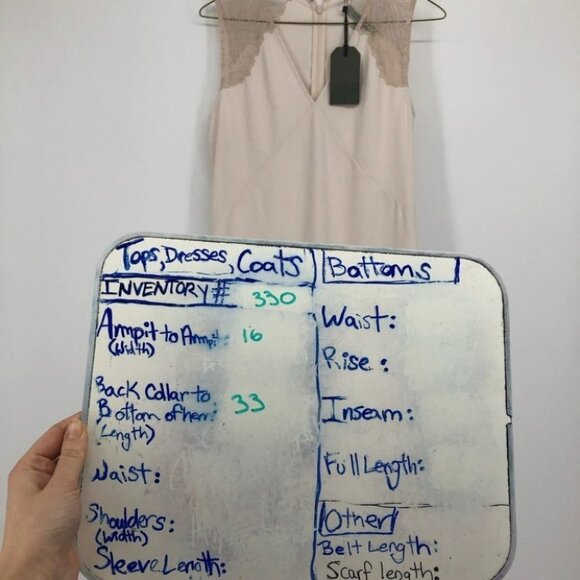 Tops, Dresses, Coats
INVENTORY # 330
Armpit to Armpit: 16
(Width)
Back Collar to
Bottom of hem: 33
(Length)
Waist:
Shoulders:
(width)
Sleeve Length:
Bottoms
Waist:
Rise:
Inseam:
Full Length:
Other
Belt Length:
Scarf length: